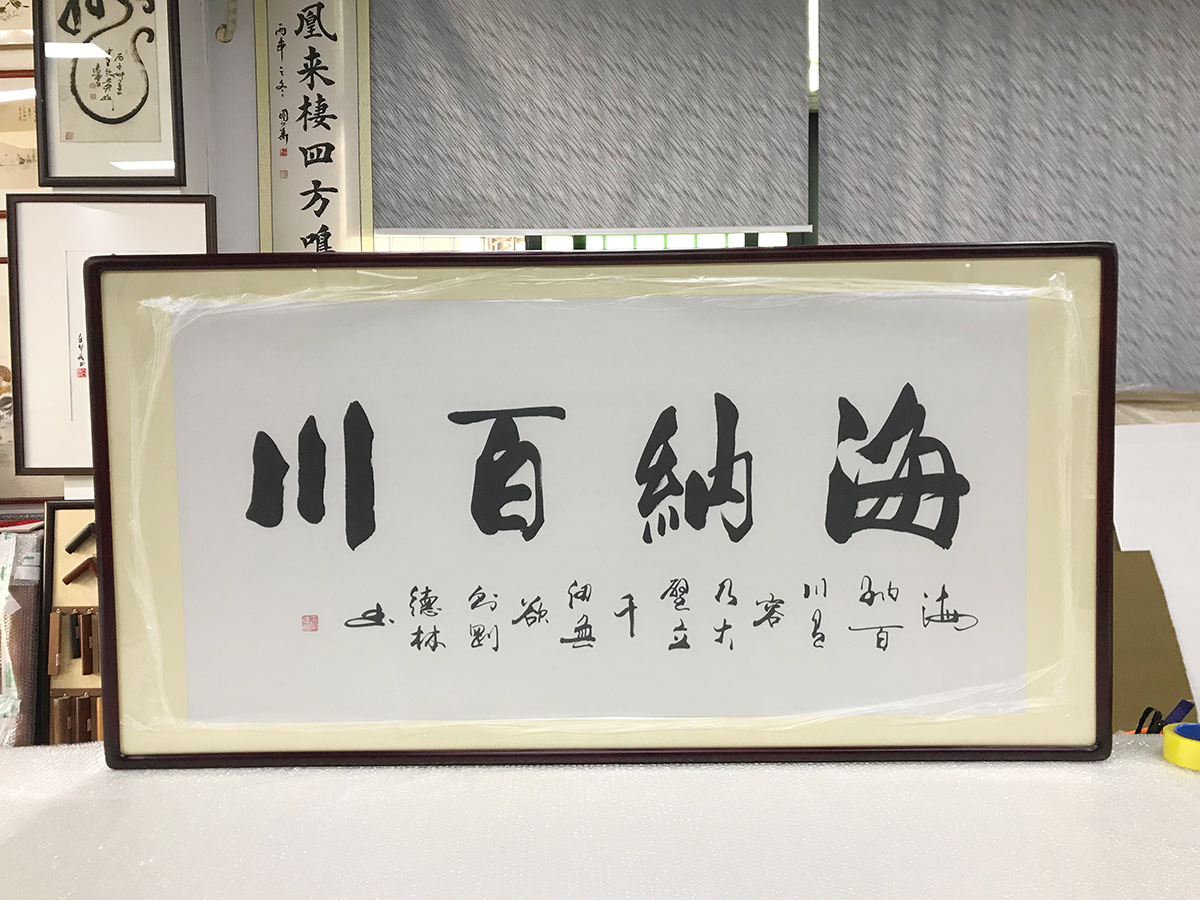 海納百川
海納百川有容乃大壁立千仞無欲則剛
德林書
凰来棲四方鳴